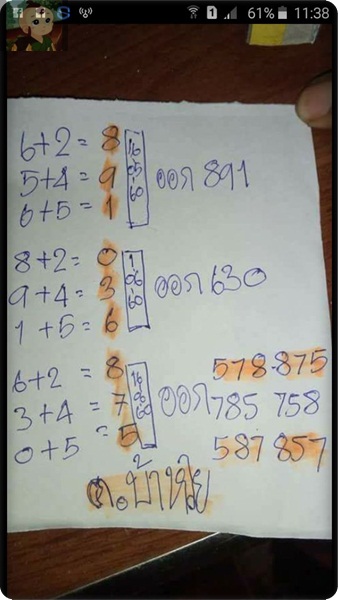 61% 11:38
6+2= 8 16-05-60 ออก 891
5+4= 9
6+5= 1
8+2= 0 1-06-60 ออก 630
9+4= 3
1+5= 6
6+2 = 8 16-06-60 ออก 578-875
3+4 = 7 785 758
0+5 = 5 587 857